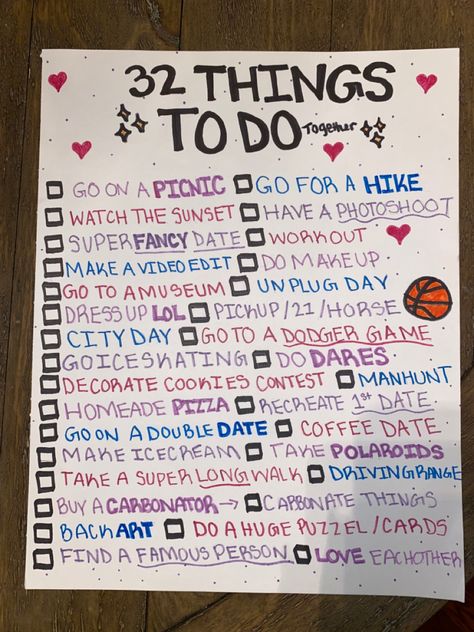 32 THINGS
TO DO Together
GO ON A PICNIC GO FOR A HIKE
WATCH THE SUNSET HAVE A PHOTOSHOOT
SUPER FANCY DATE WORKOUT
MAKE A VIDEO EDIT DO MAKEUP
GO TO A MUSEUM UNPLUG DAY
DRESS UP LOL PICKUP/21/HORSE
CITY DAY GO TO A DODGER GAME
GO ICESKATING DO DARES
DECORATE COOKIES CONTEST MANHUNT
HOMEADE PIZZA RECREATE 1st DATE
GO ON A DOUBLE DATE COFFEE DATE
MAKE ICECREAM TAKE POLAROIDS
TAKE A SUPER LONG WALK DRIVING RANGE
BUY A CARBONATOR → CARBONATE THINGS
BACK ART DO A HUGE PUZZEL/CARDS
FIND A FAMOUS PERSON LOVE EACHOTHER